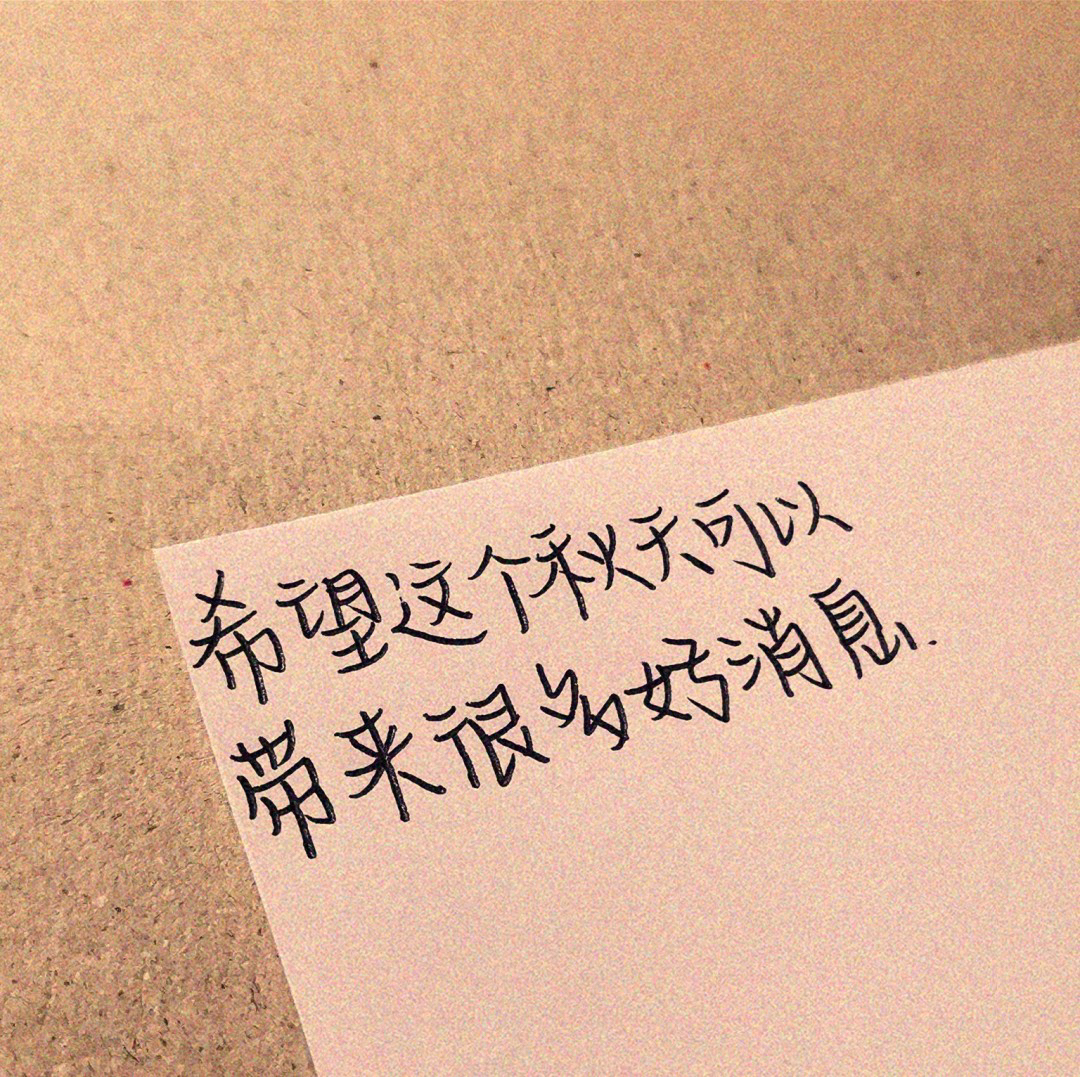 希望这个秋天可以
带来很多好消息.